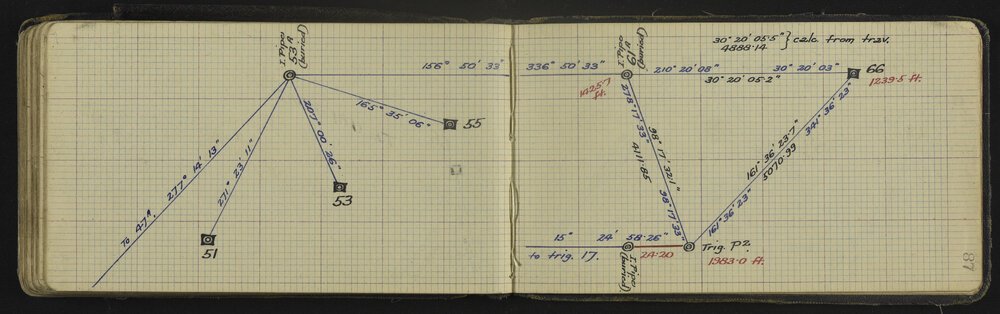 I. Pipe
53 A
(buried)
156° 50' 33"
165° 35' 06"
55
207° 00' 26"
53
271° 23' 11"
51
277° 14' 13"
To 47A.
30° 20' 05·5"
4888·14
calc. from trav.
I. Pipe
61 A
(buried)
336° 50' 33"
210° 20' 08"
30° 20' 05·2"
30° 20' 03"
66
1239·5 ft.
1425·7
ft.
278° 17' 33"
4111·85
98° 17' 32·1"
98° 17' 33"
161° 36' 23·7"
5070·99
341° 36' 23"
161° 36' 23"
15° 24' 58·26"
to trig. 17.
24·20
I. Pipe
(buried)
Trig. P2.
1983·0 ft.
87